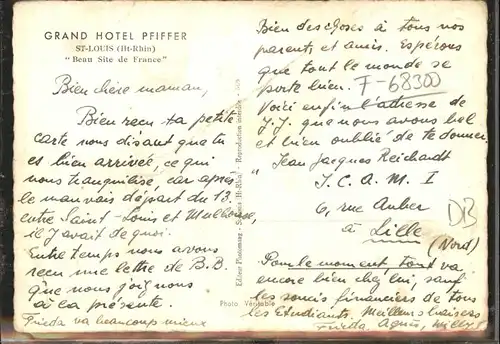 GRAND HOTEL PFIFFER
ST-LOUIS (Ht-Rhin)
"Beau Site de France"
Bien chère maman,
Bien reçu ta petite
carte nous disant que tu
es bien arrivée, ce qui
nous tranquilise, car après
le mauvais départ du 13.
entre Saint-Louis et Mulhouse,
il y avait de quoi.
Entre temps nous avons
reçu une lettre de B.B.
que nous joignons
à la présente.
Frieda va beaucoup mieux
Photo Véritable
Reproduction interdite
Bien des choses à tous nos
parents et amis. Espérons
que tout le monde se
porte bien.
F-68300
Voici enfin l'adresse de
J.J. que nous avons bel
et bien oublié de te donner.
"Jean Jacques Reichardt
I.C.A.M. I
6, rue Auber
à Lille
(Nord)
DB
Pour le moment, tout va
encore bien chez lui, sauf
les soucis financiers de tous
les Etudiants. Meilleurs baisers
Frieda, Agnès, Willy